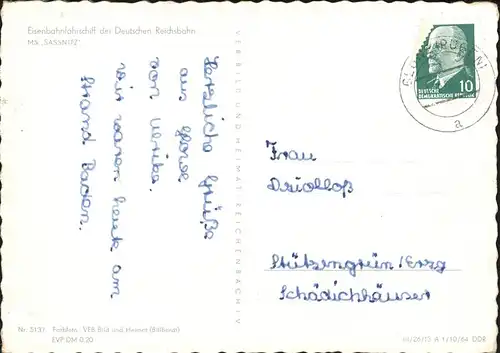 Eisenbahnfährschiff der Deutschen Reichsbahn
MS „SASSNITZ"
Herzliche Grüße
aus Glowe
von Ulrike.
wir waren heute am
Strand Baden.
VEB BILD UND HEIMAT REICHENBACH I. V
DEUTSCHE
DEMOKRATISCHE REPUBLIK
10
a
Frau
Stützengrün/Erzg
Schädichhäuser
Nr. 5137 Farbfoto: VEB Bild und Heimat
EVP DM 0.20
A 1/10/64 DDR